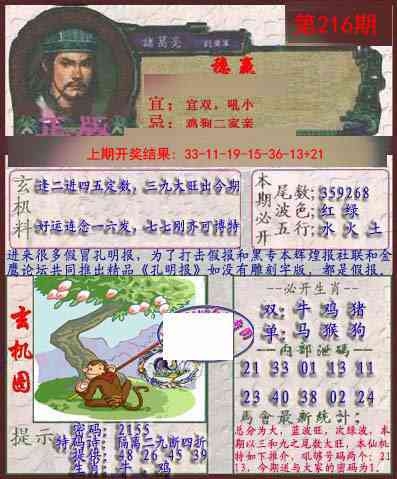 第216期
諸葛亮
穩贏
宜：宜双，吼小
正版
忌：鸡狗二家亲
上期开奖结果：33-11-19-15-36-13+21
玄机料
逢二进四五定数，三九大旺出今期
好运连念一六发，七七刚齐可博特
本期必开
尾数;359268
波色;红 绿
五行;水 火 土
进来很多假冒孔明报，为了打击假报和黑专本辉煌报社联和金
鹰论坛共同推出精品《孔明报》如没有雕刻字版，都是假报。
玄机图
--必开生肖--
双:牛 鸡 猪
单:马 猴 狗
--内部泄码--
21 33 01 13 11
23 40 38 02 24
馬會最新統计：
总分为大，蓝波旺，次绿波，本
期以三和九之尾数大旺，本仙机
特如下推介，吼够号码两个：21
13，今期送与大家的密码为1.
提示
密码：2155
特码诗：隔离二九断四折
提供：48 26 45 39
生肖：牛．鸡